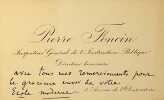 Pierre Foncin
Inspecteur Général de l'Instruction Publique
Directeur honoraire
avec tous ses remerciements pour
le gracieux envoi de votre
École moderne